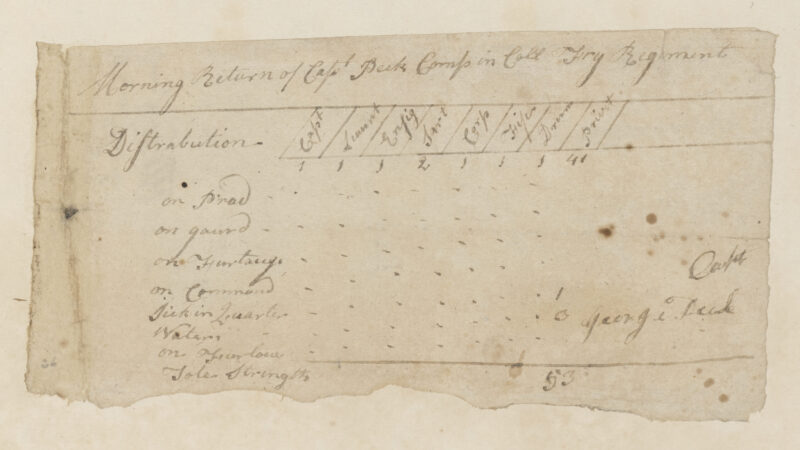 Morning Return of Capt Peck Comp in Coll Fry Regiment
Distrabution Capt Ensig Sart Corp Fifer Drum
1 1 1 2 1 1 1 41
on Prad
on gaurd
on
on Command 1
Sick in Quarter 3
on Furlow
Tole Strength 53
Capt
George Peck